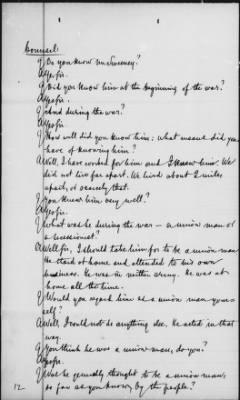 Counsel:
Q Do you know Mr Sweeney?
A Yes sir.
Q Did you know him at the beginning of the war?
A Yes sir.
Q And during the war?
A Yes sir
Q How well did you know him; what means did you
have of knowing him?
A Well, I have worked for him and I knew him. We
did not live far apart. We lived about 2 miles
apart, or scarcely that.
Q You knew him very well?
A Yes sir.
Q What was he during the war — a union man or
a secessionist?
A Well sir, I should take him for to be a union man.
He staid at home and attended to his own
business. He was in neither army. He was at
home all the time.
Q Would you regard him as a union man your
self?
A Well, I could not do anything else. He acted in that
way.
Q You think he was a union man, do you?
A Yes sir.
Q Was he generally thought to be a union man,
so far as you know, by the people?
12